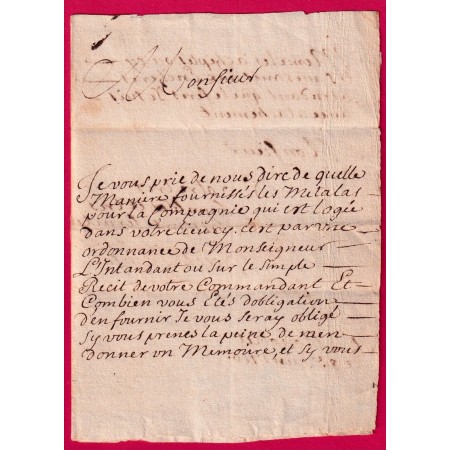 Monsieur
Je vous prie de nous dire de quelle
Maniere fournissés les Matalas
pour la Compagnie qui est logée
dans votre lieu cy, c'est par une
ordonnance de Monseigneur
L'Intandant ou sur le simple
Recit de votre Commandant Et
Combien vous Etes dobligation
d'en fournir Je vous seray obligé
sy vous prenes la peine de m'en
donner un Memoire, et sy vous